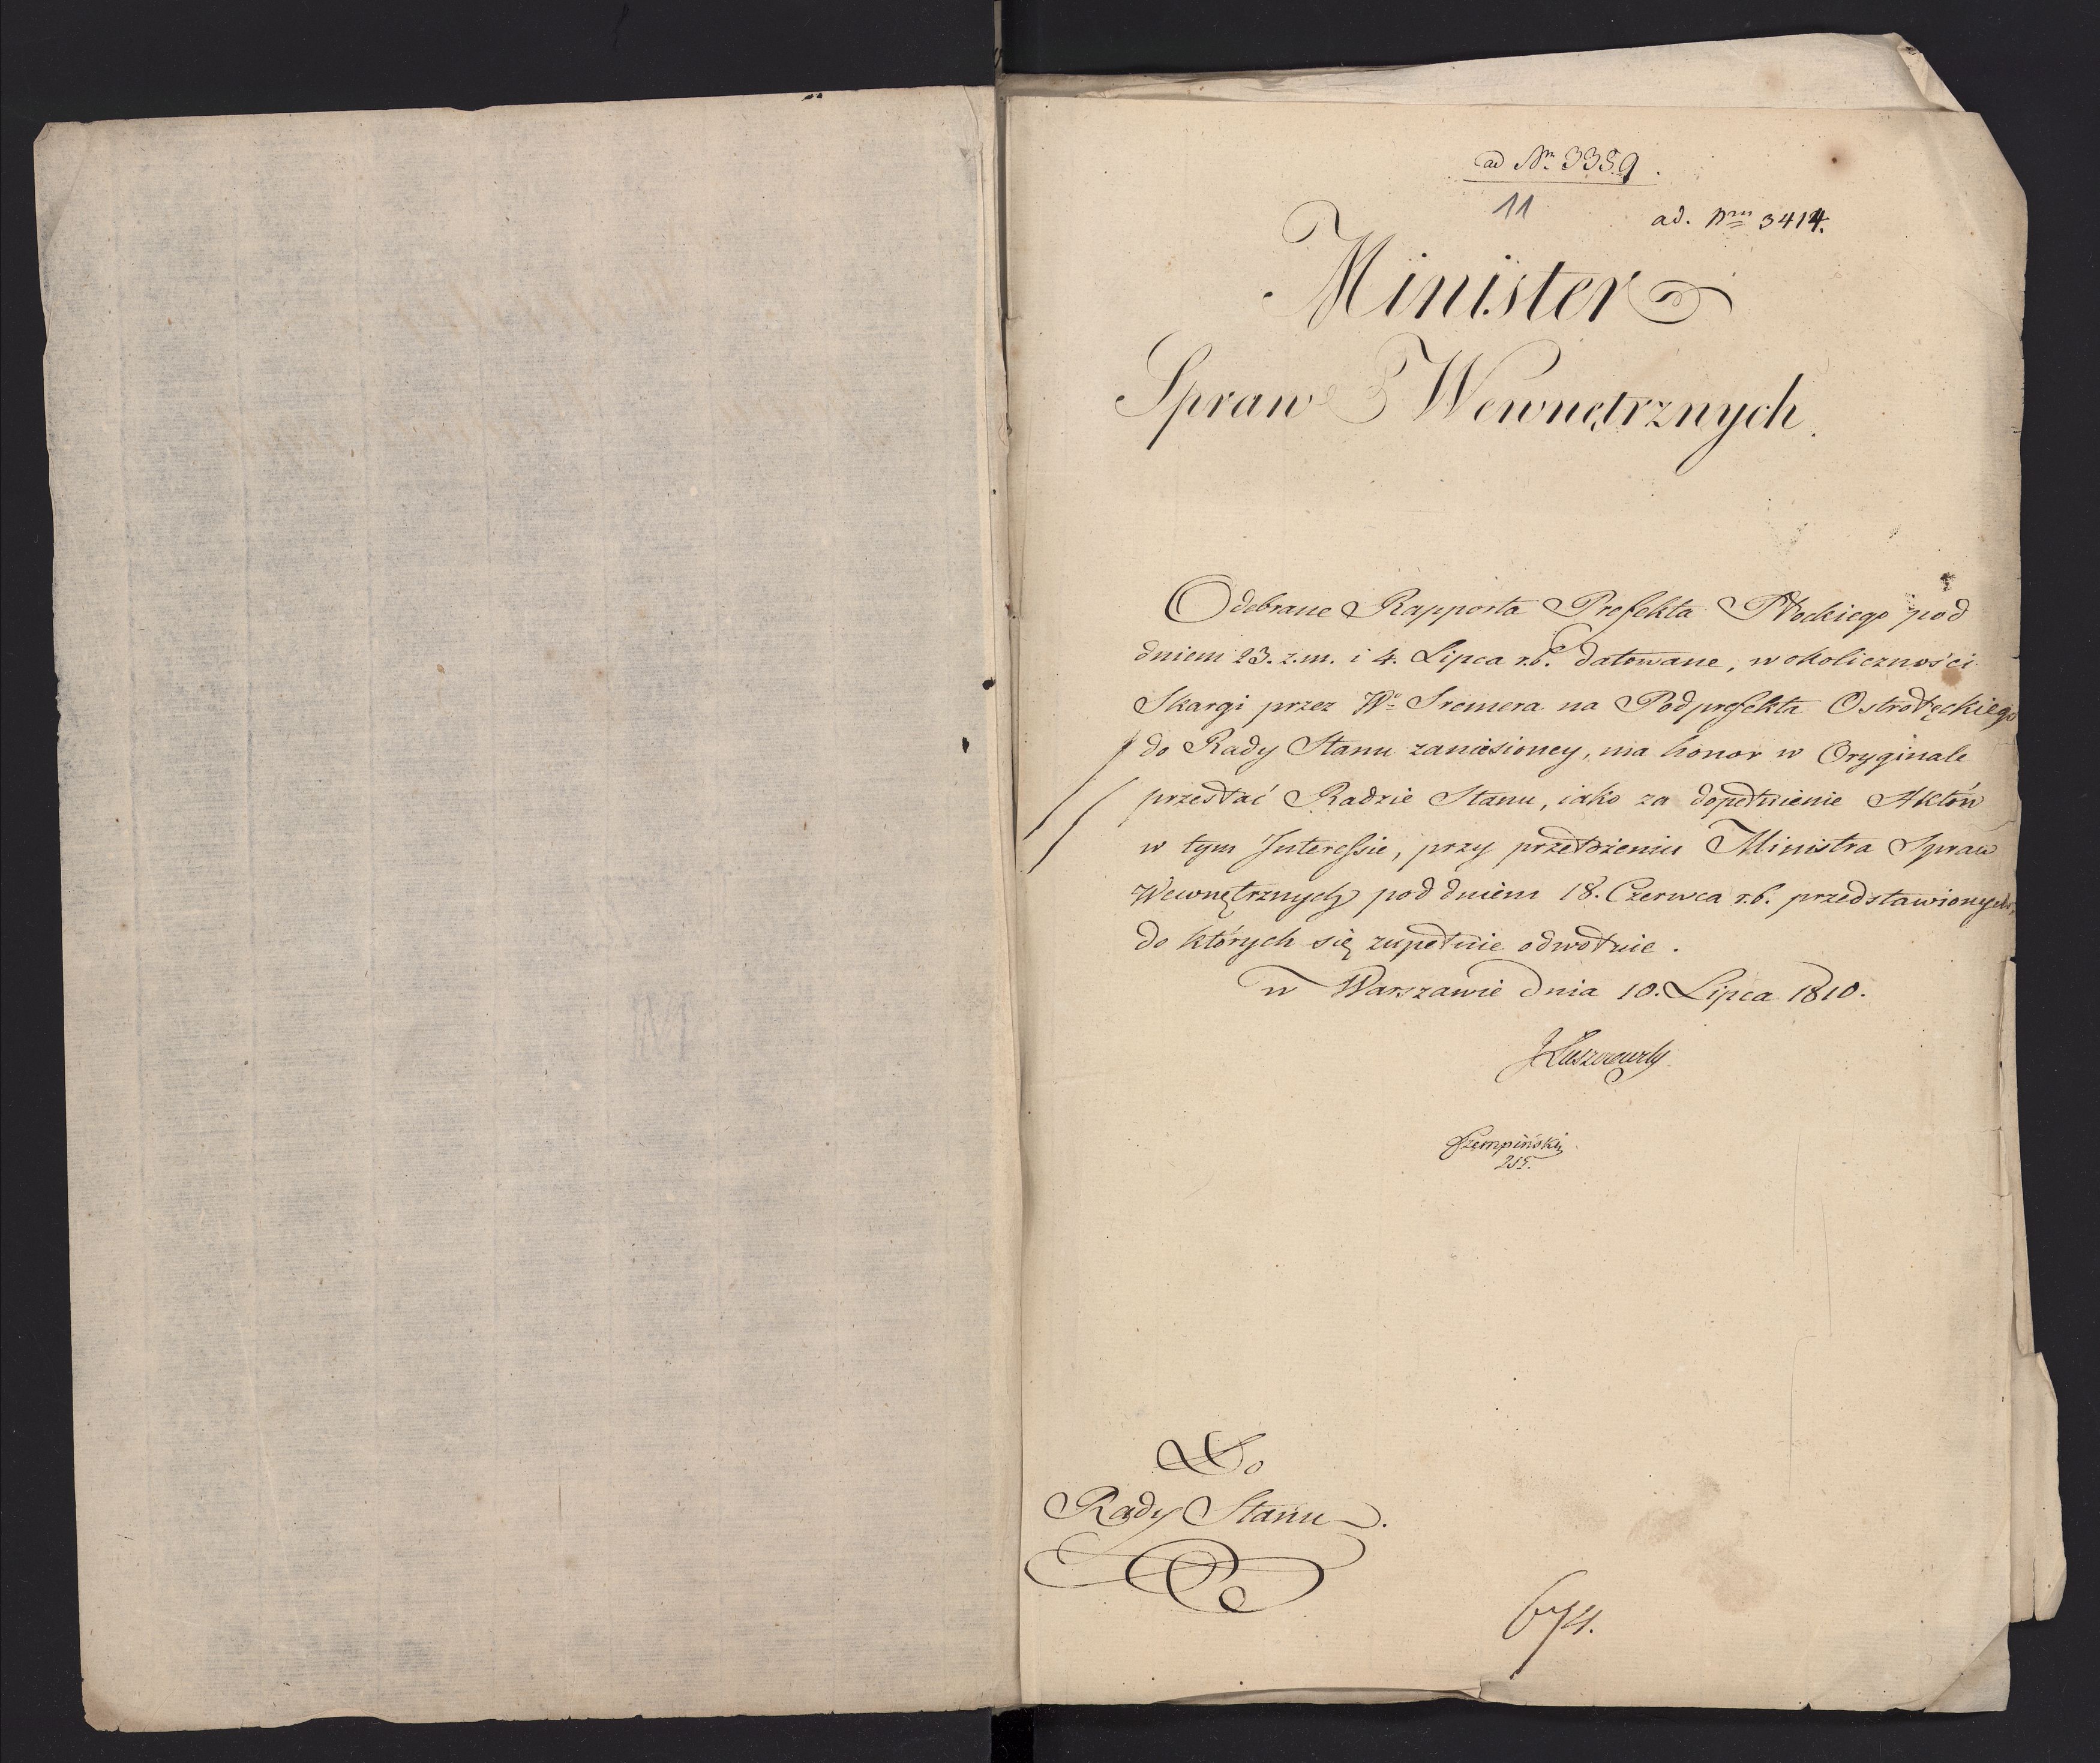 ad Nr. 3359.
11
ad. Nrm 3414.
Minister
Spraw Wewnętrznych.
Odebrane Rapporta Prefekta Płockiego pod
dniem 23. z.m. i 4. Lipca r.b. datowane, w okoliczności
Skargi przez Wo. Sremera na Podprefekta Ostrołęckiego
do Rady Stanu zaniesioney, ma honor w Oryginale
przesłać Radzie Stanu, iako za dopełnienie Aktów
w tym Interessie, przy przełożeniu Ministra Spraw
Wewnętrznych pod dniem 18. Czerwca r.b. przedstawionych,
do których się zupełnie odwołuie.
w Warszawie dnia 10. Lipca 1810.
J Łuszczewski
Szempiński
Do
Rady Stanu.
674.